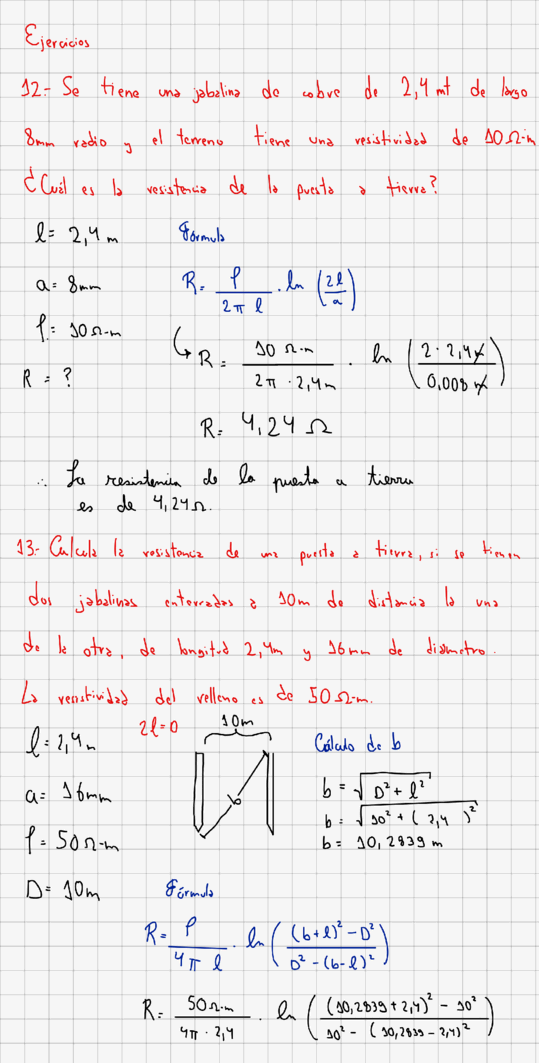 Ejercicios
12.- Se tiene una jabalina de cobre de 2,4 mt de largo
8mm radio y el terreno tiene una resistividad de 10 Ω·m
¿Cuál es la resistencia de la puesta a tierra?
l = 2,4 m
Fórmula
a = 8mm
R = ρ / (2π l) · ln (2l / a)
ρ = 10 Ω·m
R = 10 Ω·m / (2π · 2,4m) · ln (2 · 2,4m / 0,008 m)
R = ?
R = 4,24 Ω
∴ La resistencia de la puesta a tierra
es de 4,24 Ω.
13.- Calcula la resistencia de una puesta a tierra, si se tienen
dos jabalinas enterradas a 10m de distancia la una
de la otra, de longitud 2,4m y 16mm de diametro.
La resistividad del relleno es de 50 Ω·m.
l = 2,4 m
2l = 0
10m
Cálculo de b
b
a = 16mm
b = √(D² + l²)
b = √(10² + (2,4)²)
ρ = 50 Ω·m
b = 10,2839 m
D = 10m
Fórmula
R = ρ / (4π l) · ln ((b+l)² - D² / D² - (b-l)²)
R = 50 Ω·m / (4π · 2,4) · ln ((10,2839 + 2,4)² - 10² / 10² - (10,2839 - 2,4)²)